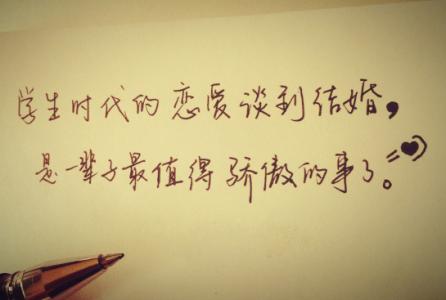 学生时代的恋爱谈到结婚,
是一辈子最值得骄傲的事了。